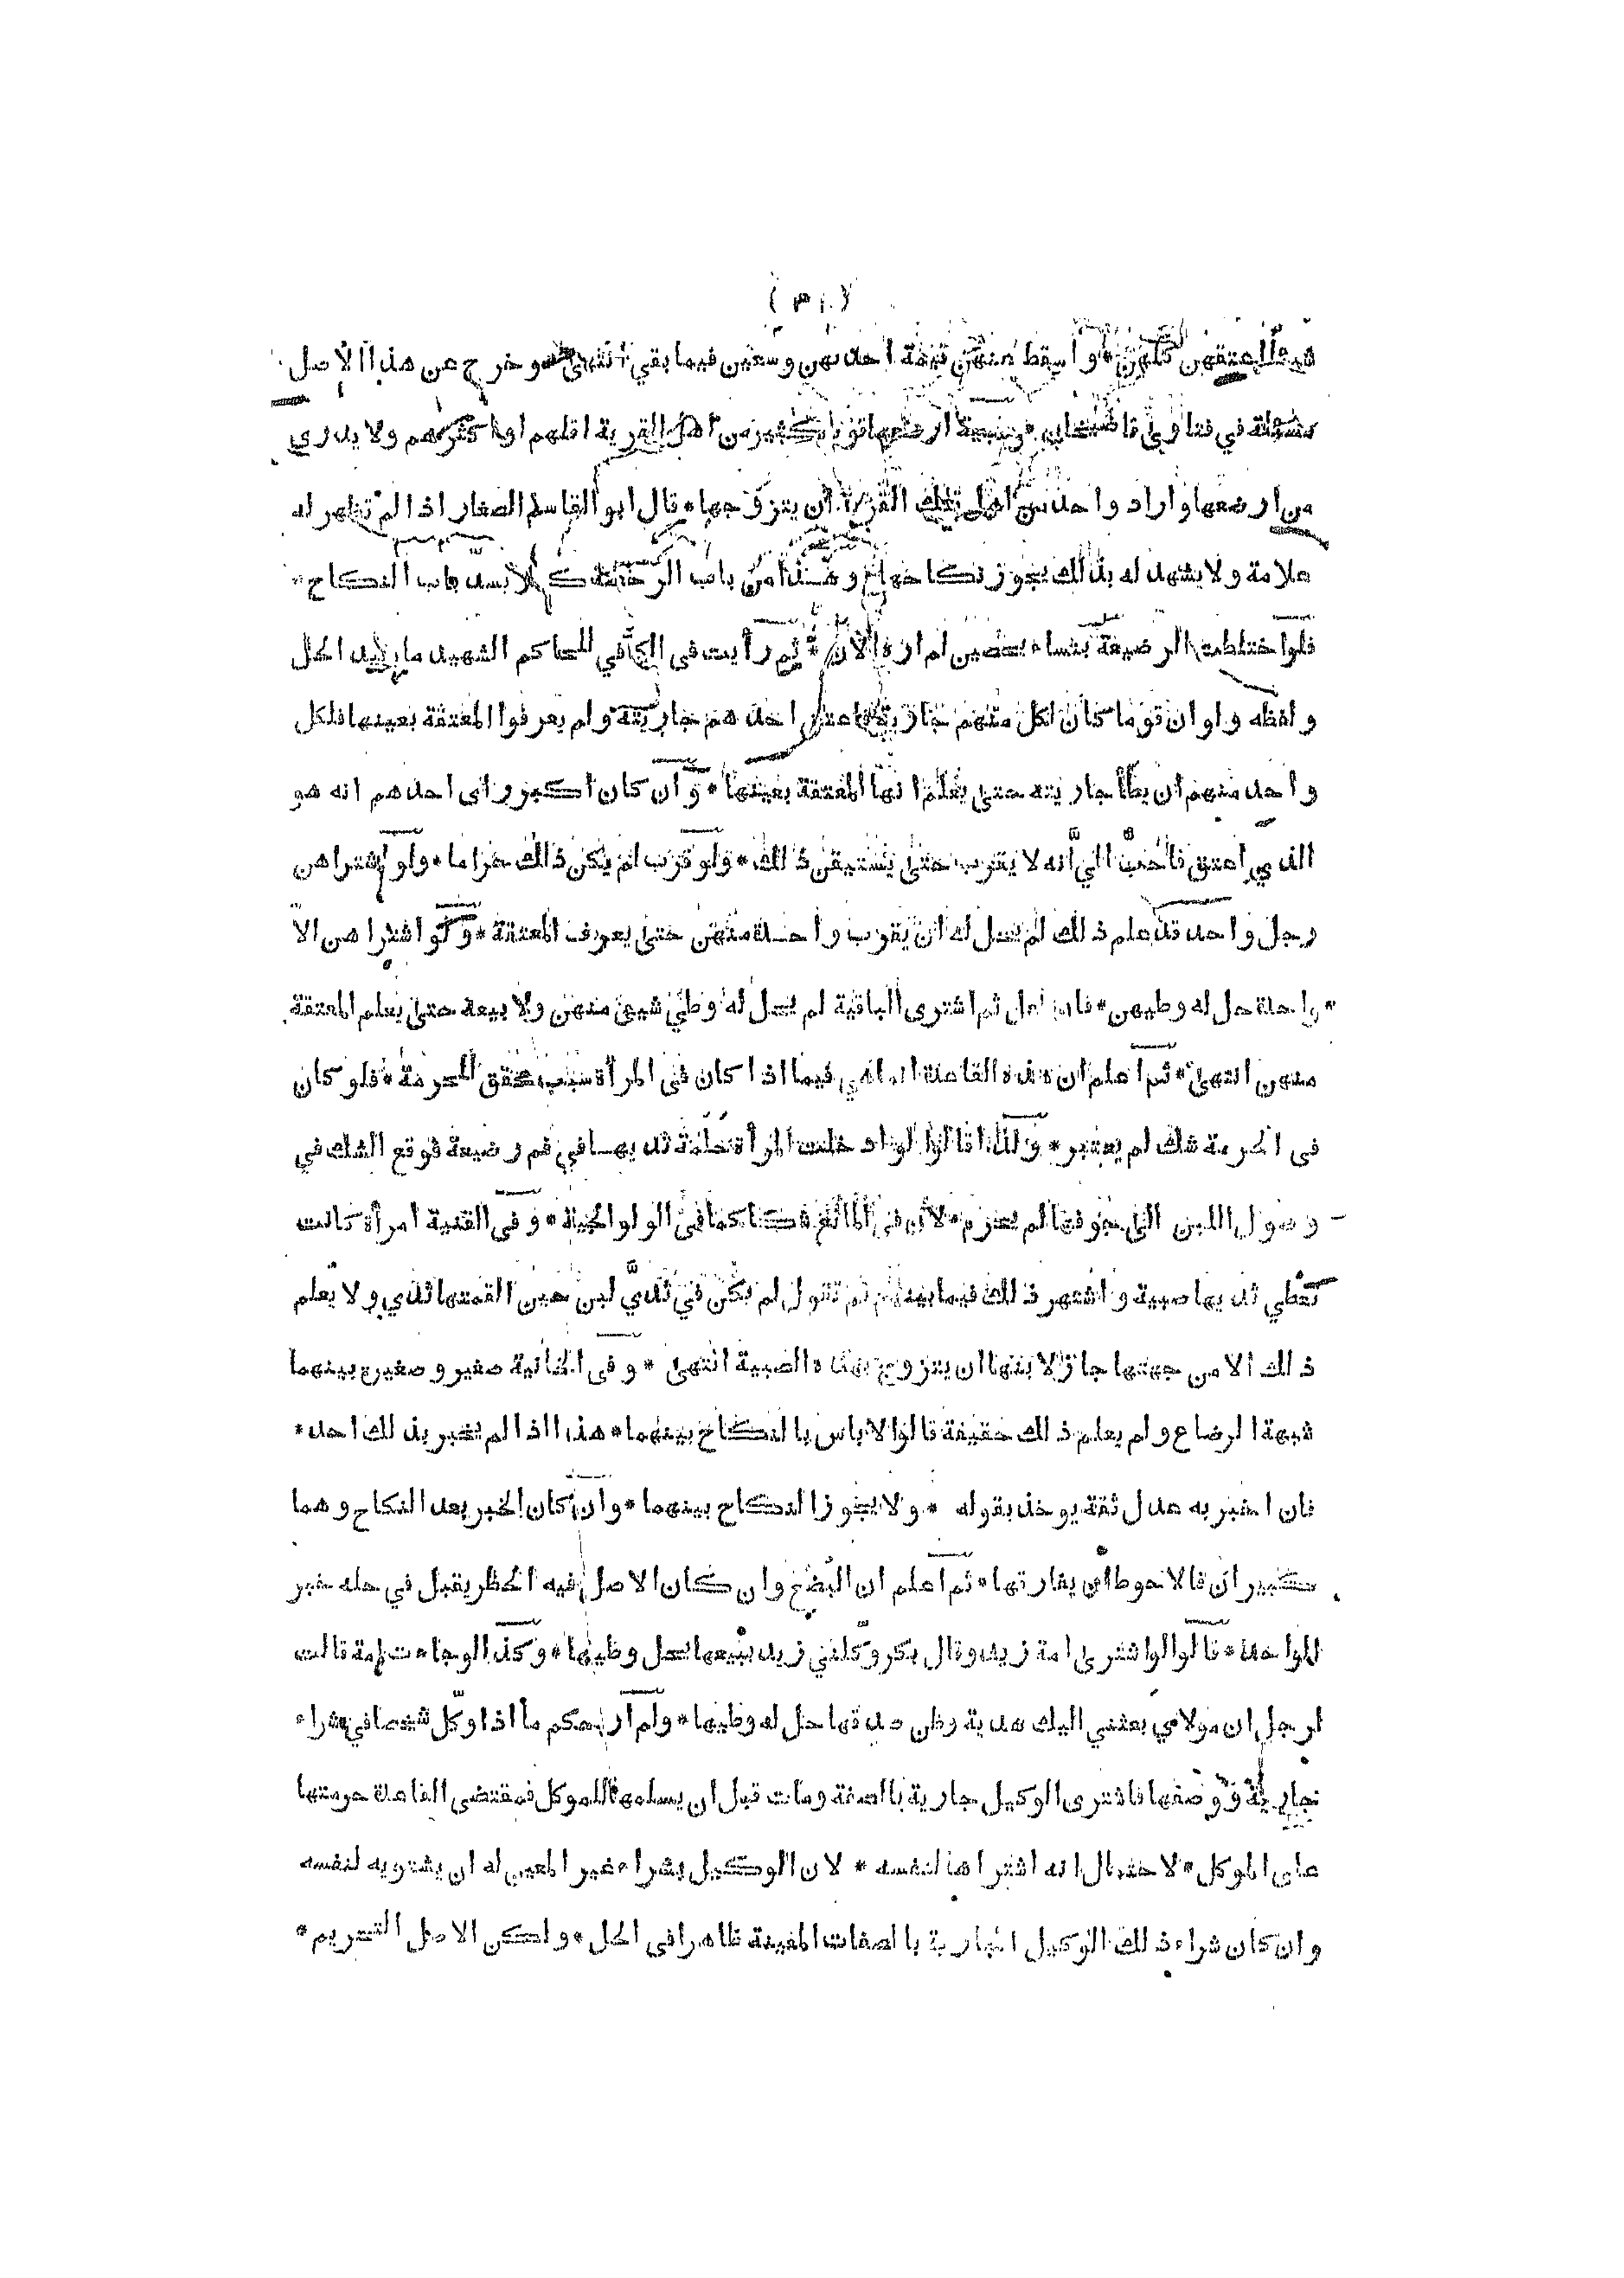 شيئا اعتقهن كلهن * واسقط منهن قيمة احديهن وسعين فيما بقي انتهى * وخرج عن هذا الاصل
مسئلة في فتاوى قاضيخان * صبية ارضعها قوم كثير من اهل القرية اقلهم او اكثرهم ولا يدرى
من ارضعها واراد واحد من اهل تلك القرية ان يتزوجها * قال ابو القاسم الصفار اذا لم تظهر له
علامة ولا يشهد له بذلك يجوز نكاحها * وهذا من باب الرخصة كيلا ينسد باب النكاح *
فلو اختلطت الرضيعة بنساء يحصين لم اره الآن * ثم رأيت فى الكافي للحاكم الشهيد ما يفيد الحل
ولفظه ولو ان قوما كان لكل منهم جارية فاعتق احدهم جاريته ولم يعرفوا المعتقة بعينها فلكل
واحد منهم ان يطأ جاريته حتى يعلم انها المعتقة بعينها * وان كان اكبر راى احدهم انه هو
الذي اعتق فاحب الي انه لا يقرب حتى يستيقن ذلك * ولو قرب لم يكن ذلك حراما * ولو اشتراهن
رجل واحد قد علم ذلك لم يحل له ان يقرب واحدة منهن حتى يعرف المعتقة * ولو اشتراهن الا
واحدة حل له وطيهن * فان فعل ثم اشترى الباقية لم يحل له وطئ شيئ منهن ولا بيعه حتى يعلم المعتقة
منهن انتهى * ثم اعلم ان هذه القاعدة انما هي فيما اذا كان فى المرأة سبب محقق للحرمة * فلو كان
فى الحرمة شك لم يعتبر * ولذا قالوا لو ادخلت المرأة حلمة ثديها في فم رضيعة فوقع الشك في
وصول اللبن الى جوفها لم يحرم * لان فى المانع شكا كما فى الولوالجية * وفى القنية امرأة كانت
تعطي ثديها صبية واشتهر ذلك فيما بينهم ثم تقول لم يكن في ثديي لبن حين القمتها ثديي ولا يعلم
ذلك الا من جهتها جاز لابنها ان يتزوج بهذه الصبية انتهى * وفى الخانية صغير وصغيرة بينهما
شبهة الرضاع ولم يعلم ذلك حقيقة قالوا لا باس بالنكاح بينهما * هذا اذا لم يخبر بذلك احد *
فان اخبر به عدل ثقة يوخذ بقوله * ولا يجوز النكاح بينهما * وان كان الخبر بعد النكاح وهما
كبيران فالاحوط ان يفارقها * ثم اعلم ان البضع وان كان الاصل فيه الحظر يقبل في حله خبر
الواحد * قالوا لو اشترى امة زيد وقال بكر وكلني زيد ببيعها يحل وطيها * وكذا لو جاءت امة قالت
لرجل ان مولاي بعثني اليك هدية وظن صدقها حل له وطيها * ولم ار حكم ما اذا وكل شخصا في شراء
جارية ووصفها فاشترى الوكيل جارية بالصفة ومات قبل ان يسلمها للموكل فمقتضى القاعدة حرمتها
على الموكل * لاحتمال انه اشتراها لنفسه * لان الوكيل بشراء غير المعين له ان يشتريه لنفسه
وان كان شراء ذلك الوكيل الجارية بالصفات المعينة ظاهرا فى الحل * ولكن الاصل التحريم *